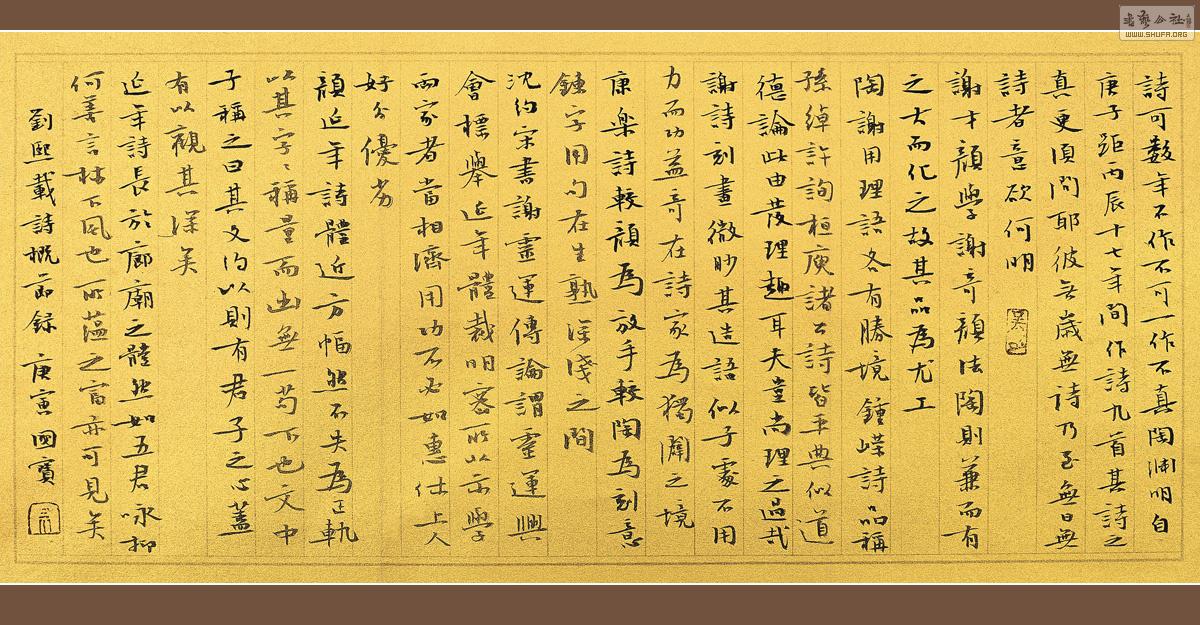 詩可数年不作不可一作不真陶渊明自
庚子距丙辰十七年间作詩九首其詩之
真更須問耶彼無歲無詩乃至無日無
詩者意欲何明
謝才顔學謝奇顔法陶則兼而有
之大而化之故其品為尤工
陶謝用理語各有勝境鍾嶸詩品稱
孫綽許詢桓庾諸公詩皆平典似道
德論此由乏理趣耳夫豈尚理之過哉
謝詩刻畫微眇其造語似子處不用
力而功益奇在詩家為獨闢之境
康樂詩較顔為放手較陶為刻意
鍊字用句在生熟深淺之間
沈约宋書謝靈運傳論謂靈運興
會標舉延年體裁明密所以示學
兩家者當相濟用功不必如惠休上人
好分優劣
顔延年詩體近方幅然不失為正軌
以其字字稱量而出無一苟下也文中
子稱之曰其文约以則有君子之心蓋
有以觀其深矣
延年詩長於廊廟之體然如五君咏抑
何善言林下風也所蕴之富亦可見矣
劉熙載詩概節録 庚寅國寶
WWW.SHUFA.ORG